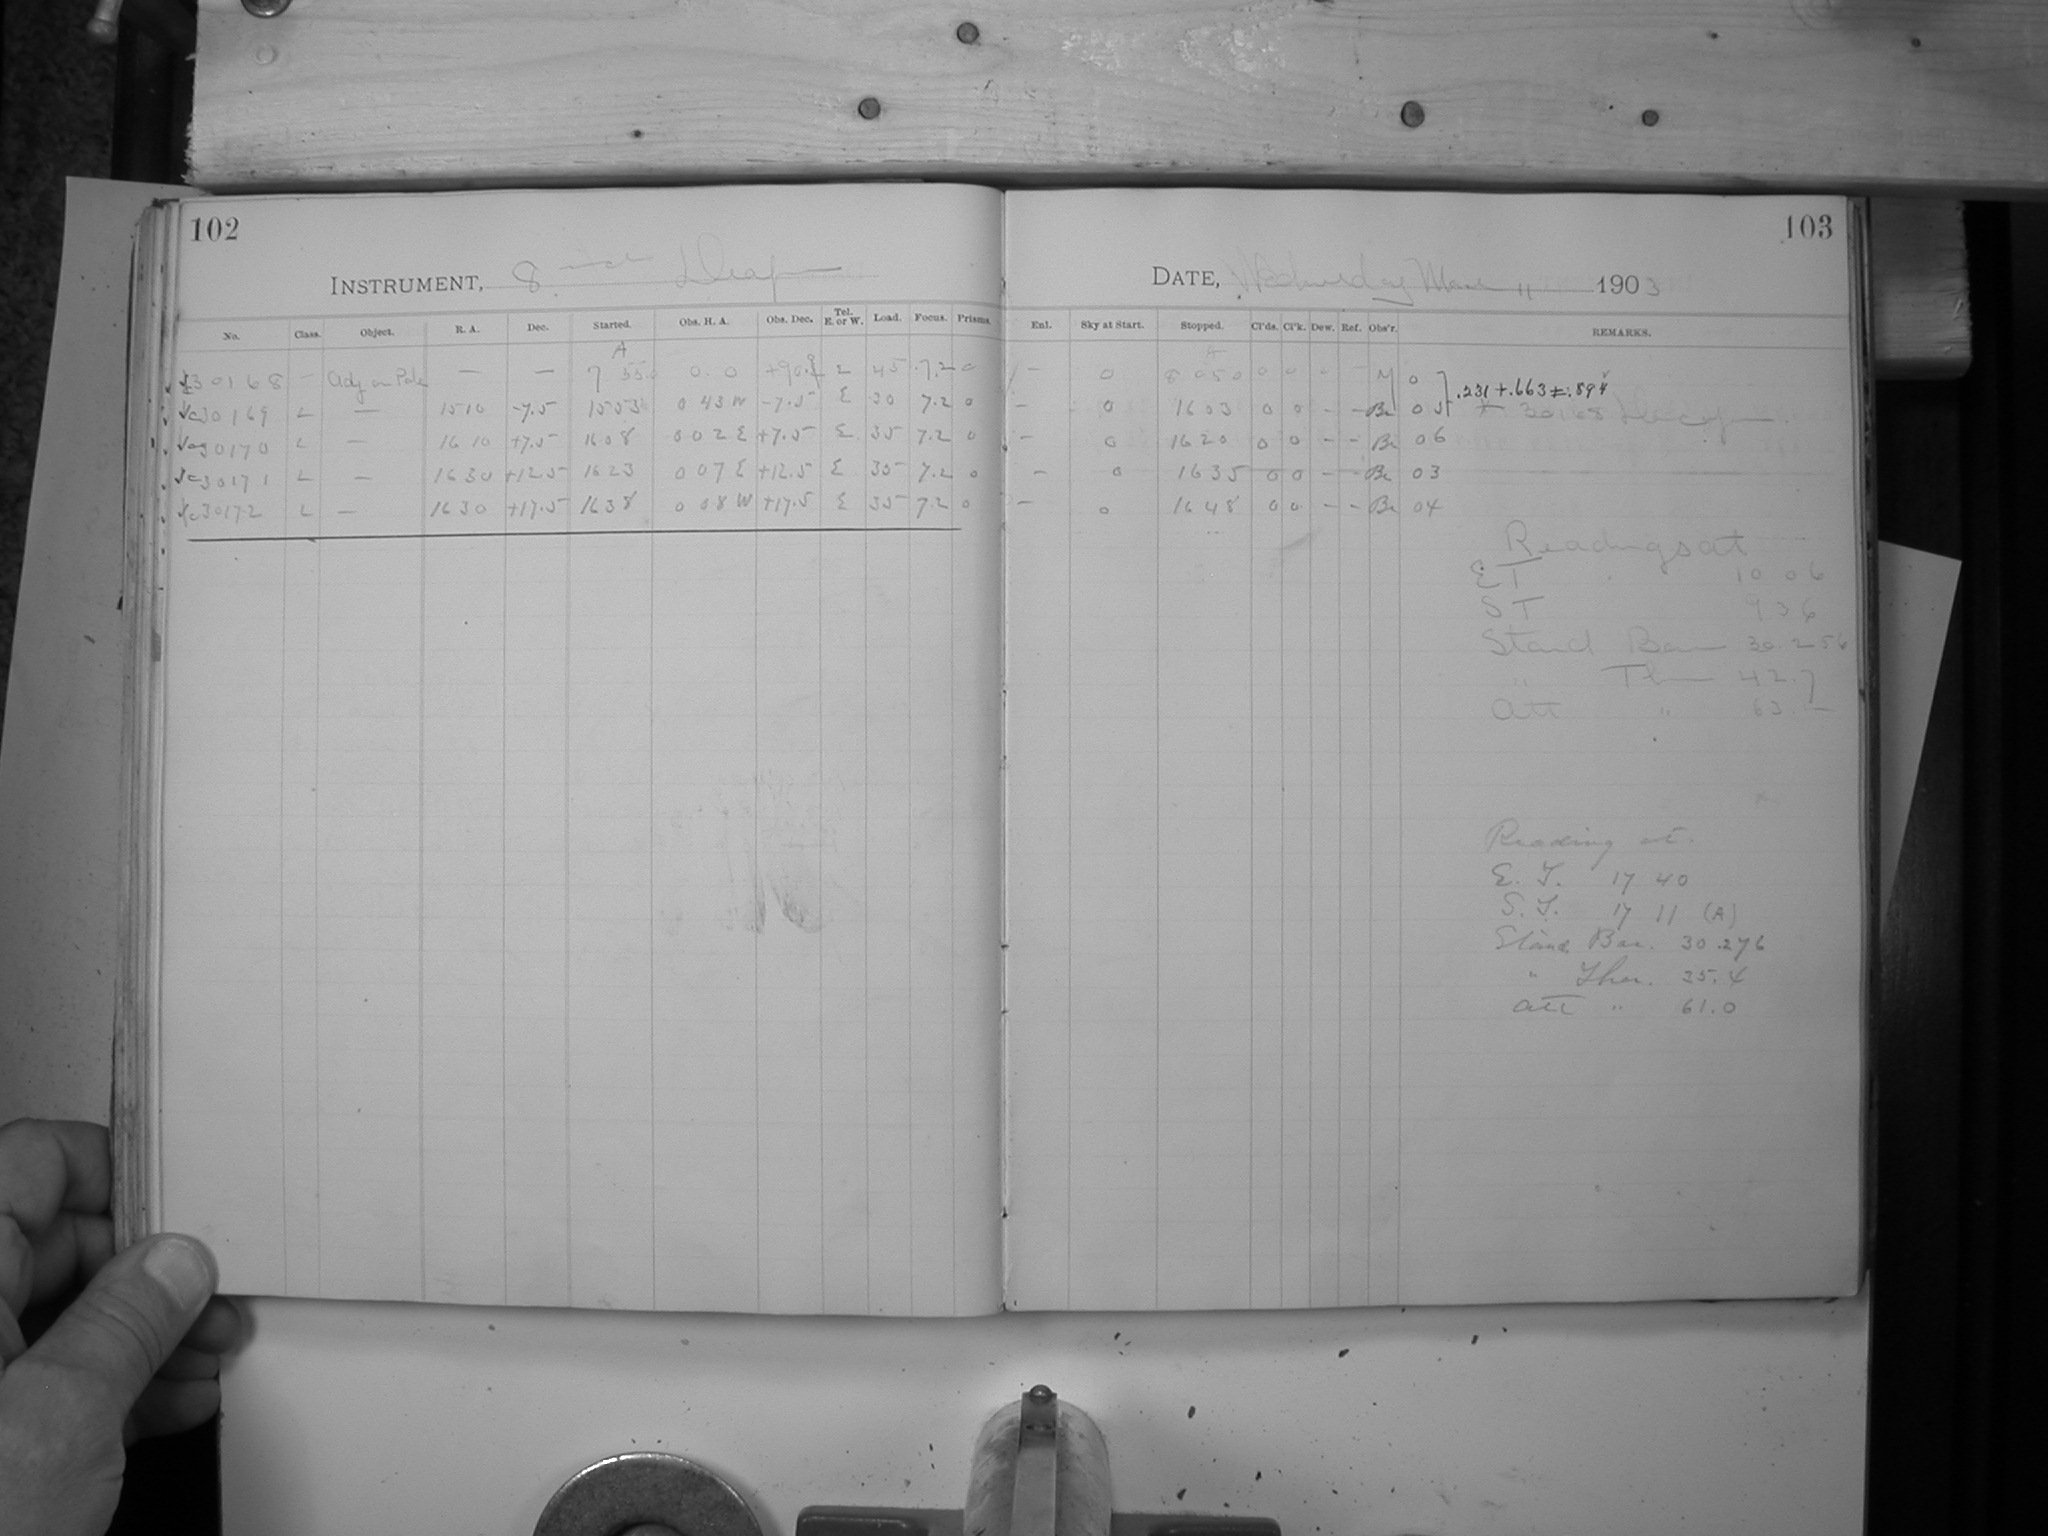 102
INSTRUMENT, 8 inch Draper
No. Class. Object. R. A. Dec. Started. Obs. H. A. Obs. Dec. Tel. E. or W. Load. Focus. Prisms.
A
30168 — Adj on Pole — — 7 55 0 0.0 +90. 45 7.2 0
c30169 L — 1510 -7.5 1553 0 43 W -7.5 E 30 7.2 0
30170 L — 1610 +7.5 1608 0 02 E +7.5 E 35 7.2 0
c30171 L — 1630 +12.5 1623 0 07 E +12.5 E 35 7.2 0
c30172 L — 1630 +17.5 1638 0 08 W +17.5 E 35 7.2 0
103
DATE, Wednesday Mar 11 1903
Enl. Sky at Start. Stopped. Cl'ds. Cl'k. Dew. Ref. Obs'r. REMARKS.
A
— 0 8 05 0 0 0 - - M 0 .231 + .663 = .894
— 0 1603 0 0 - - Br 05 30168
— 0 1620 0 0 - - Br 06
— 0 1635 0 0 - - Br 03
— 0 1648 0 0 - - Br 04
Readings at
E T 10 06
S T 9 36
Stand Bar 30.256
" Th 42.7
Att " 63.—
Reading at.
E. T. 17 40
S. T. 17 11 (A)
Stand Bar. 30.276
" Ther. 35.4
Att " 61.0